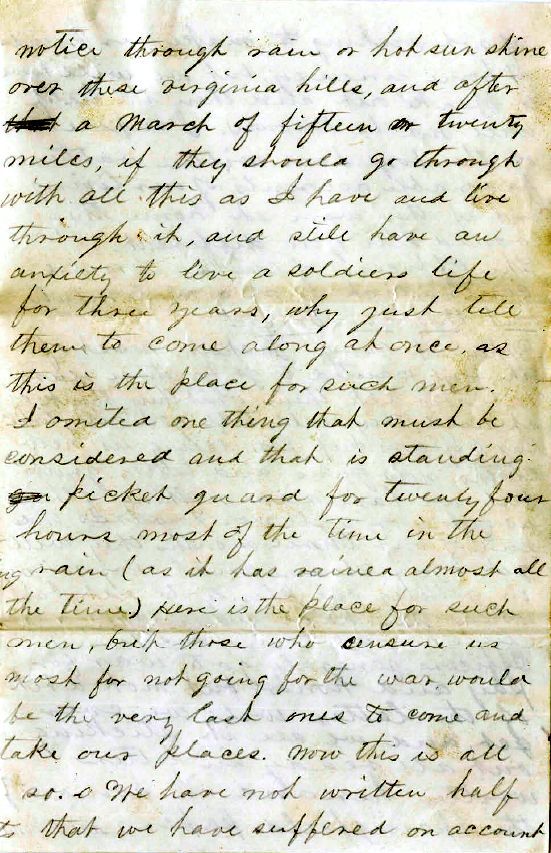 notice through rain or hot sun shine
over these virginia hills, and after
a march of fifteen or twenty
miles, if they should go through
with all this as I have and live
through it, and still have an
anxiety to live a soldiers life
for three years, why just tell
them to come along at once, as
this is the place for such men.
I omited one thing that must be
considered and that is standing
picket guard for twenty four
hours most of the time in the
rain (as it has rained almost all
the time.) here is the place for such
men, but those who censure us
most for not going for the war would
be the very last ones to come and
take our places. now this is all
so. We have not written half
that we have suffered on account